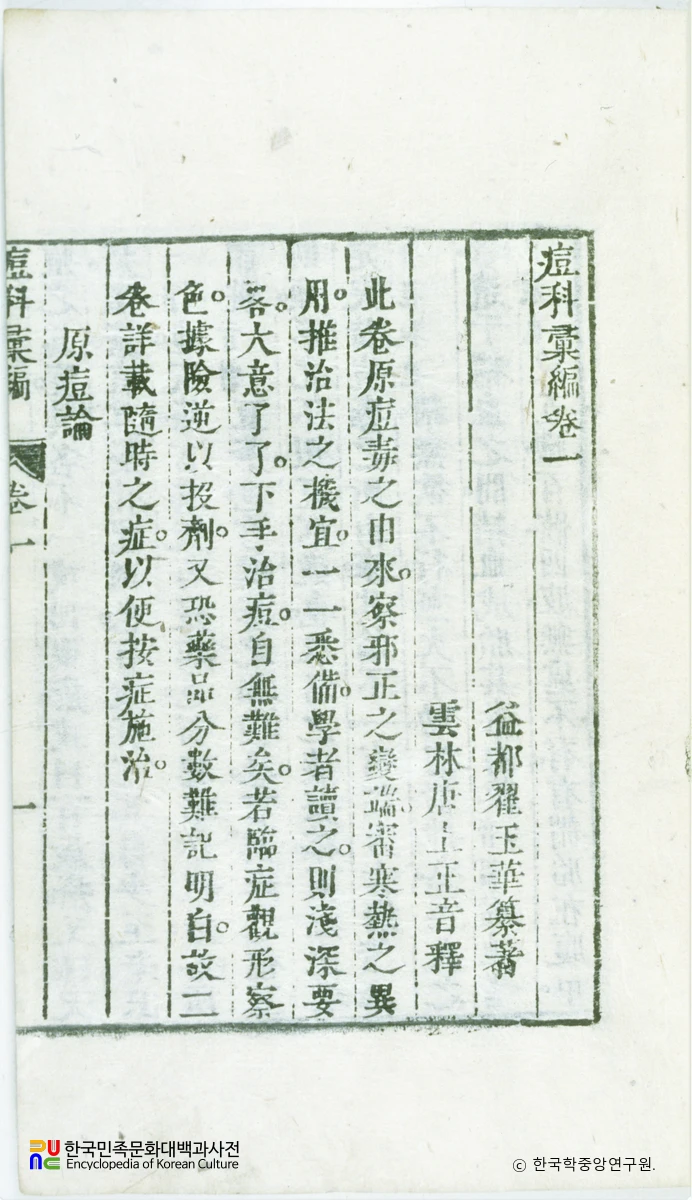 痘科彙編卷一
益都翟玉華纂著
雲林唐士正音釋
此卷原痘毒之由來。察邪正之變端。審寒熱之異
用。推治法之機宜。一一悉備。學者讀之。則淺深要
畧。大意了了。下手治痘。自無難矣。若臨症觀形察
色。據險逆以投劑。又恐藥品分數難記明白。故二
卷詳載隨時之症。以便按症施治。
原痘論
痘科彙編 卷一 一
한국민족문화대백과사전
Encyclopedia of Korean Culture
© 한국학중앙연구원.